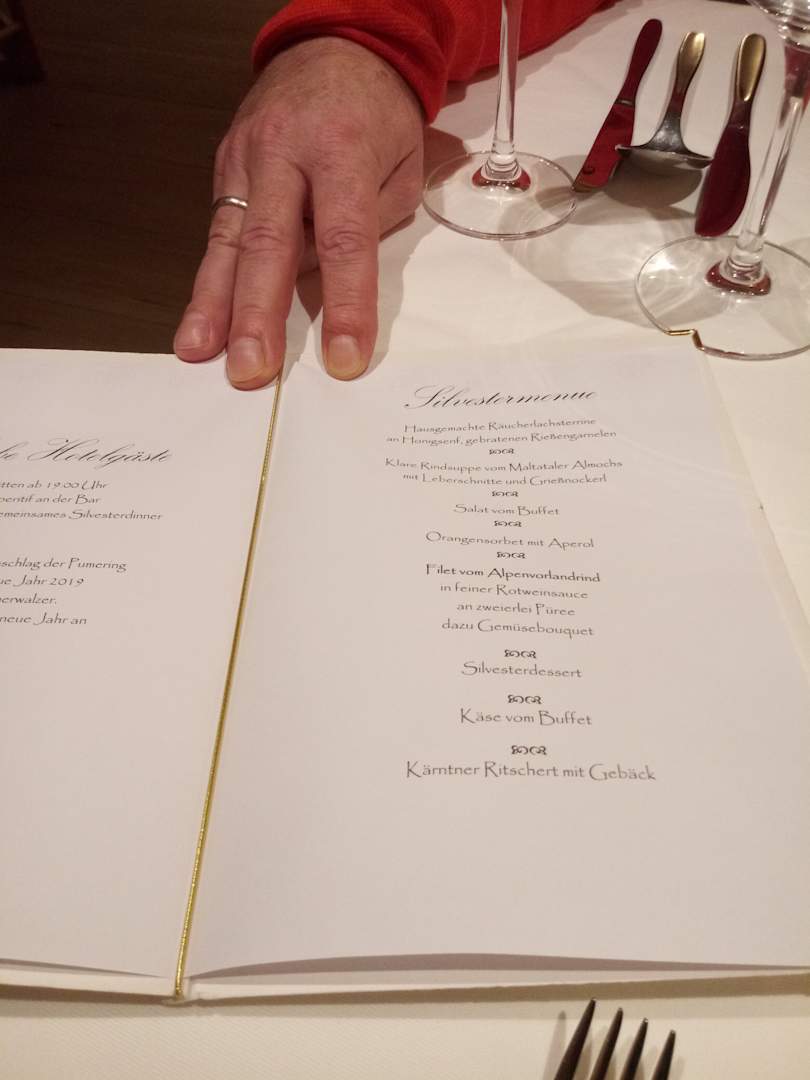 Hotelgäste
ab 19:00 Uhr
an der Bar
Silvesterdinner
der Pumering
Jahr 2019
neue Jahr an
Silvestermenue
Hausgemachte Räucherlachsterrine
an Honigsenf, gebratenen Rießengarnelen
Klare Rindsuppe vom Maltataler Almochs
mit Leberschnitte und Grießnockerl
Salat vom Buffet
Orangensorbet mit Aperol
Filet vom Alpenvorlandrind
in feiner Rotweinsauce
an zweierlei Püree
dazu Gemüsebouquet
Silvesterdessert
Käse vom Buffet
Kärntner Ritschert mit Gebäck